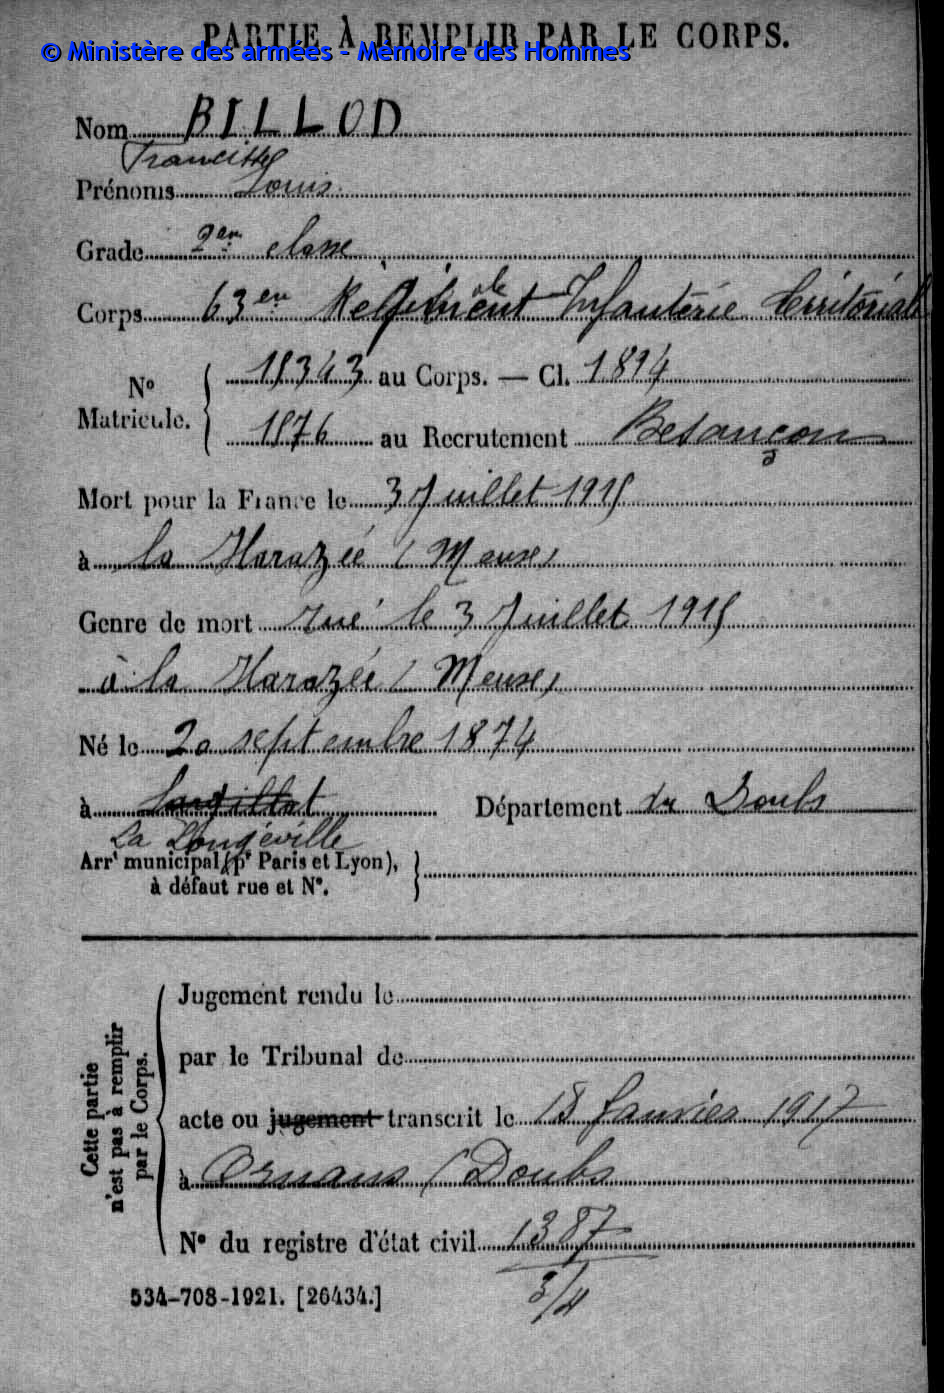 PARTIE À REMPLIR PAR LE CORPS.
© Ministère des armées - Mémoire des Hommes
Nom BILLOD
Francisque
Prénoms Louis
Grade 2en classe
Corps 63en Régiment Infanterie territoriale
No Matricule. 15343 au Corps. — Cl. 1894
1876 au Recrutement Besançon
Mort pour la France le 3 Juillet 1915
à la Harazée (Meuse)
Genre de mort Tué le 3 Juillet 1915
à la Harazée (Meuse)
Né le 20 septembre 1874
à Longillat Département du Doubs
La Longeville
Arrt municipal (pr Paris et Lyon),
à défaut rue et No.
Cette partie n'est pas à remplir par le Corps.
Jugement rendu le
par le Tribunal de
acte ou jugement transcrit le 18 Janvier 1917
à Ornans (Doubs
No du registre d'état civil 1387
3/4
534-708-1921. [26434.]